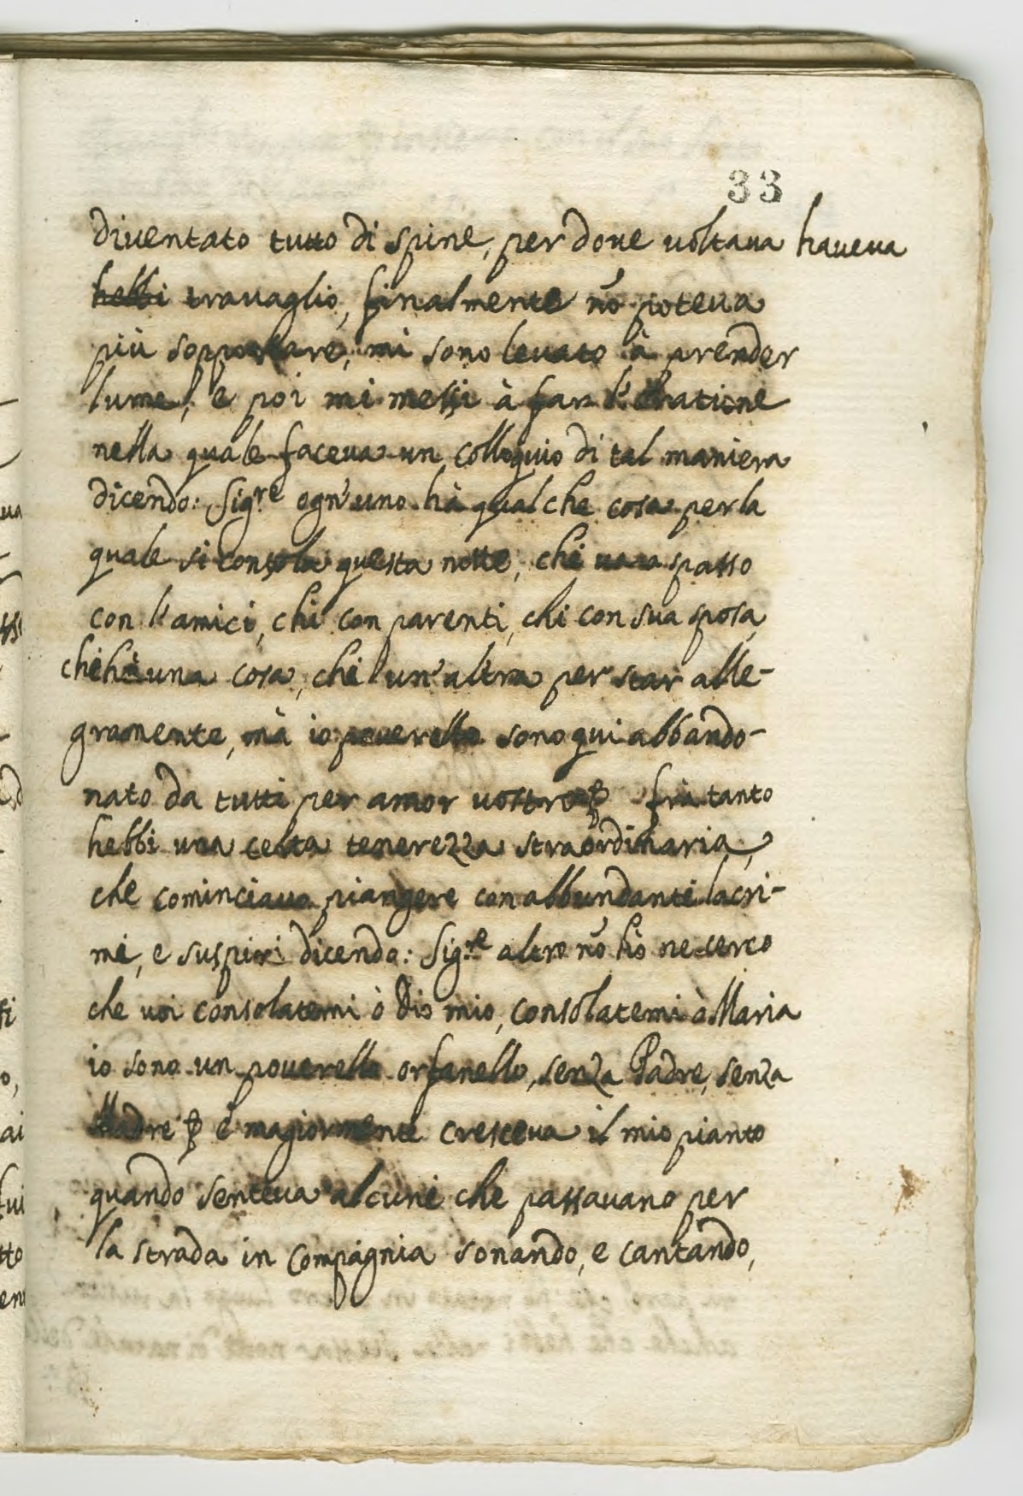 33
diventato tutto di spine, per doue uoltaua haueua
hebbi trauaglio, finalmente nõ poteua
più sopportare, mi sono leuato à prender
lume, e poi mi messi à far l'Oratione
nella quale faceua un Colloquio di tal maniera
dicendo: Sig.re ogn'uno hà qual che cosa per la
quale si consola questa notte, chi spasso
con l'amici, chi con parenti, chi con sua sposa,
chi hà una cosa, chi un'altra per star alle-
gramente, mà io pouerello sono qui abbando-
nato da tutti per amor uostro frà tanto
hebbi una certa tenerezza straordinaria,
che cominciaua piangere con abbundanti lacri-
mi, e suspiri dicendo: Sig.re altro nõ hò ne cerco
che uoi consolatemi ò Dio mio, consolatemi ò Maria
io sono un pouerello orfanello, senza Padre, senza
Madre e magiormente cresceua il mio pianto
quando senteua alcuni che passauano per
la strada in Compagnia sonando, e cantando,